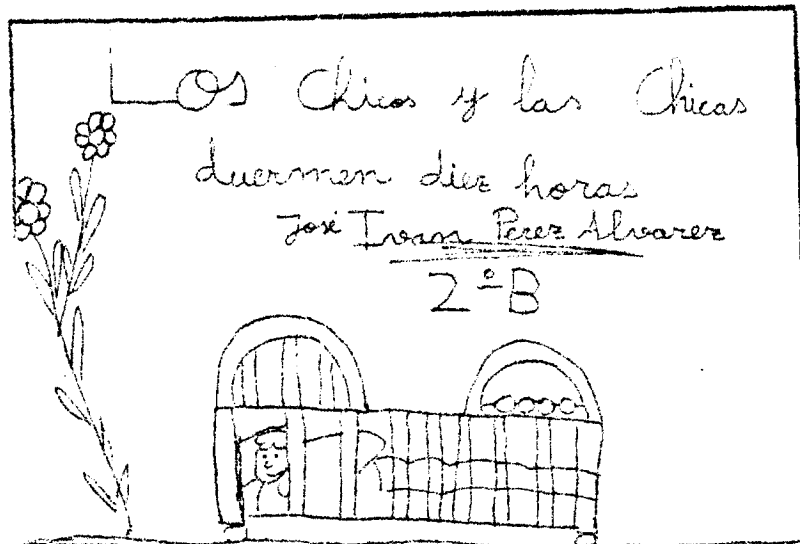 Los Chicos y las Chicas
duermen diez horas
José Ivan Perez Alvarez
2º B